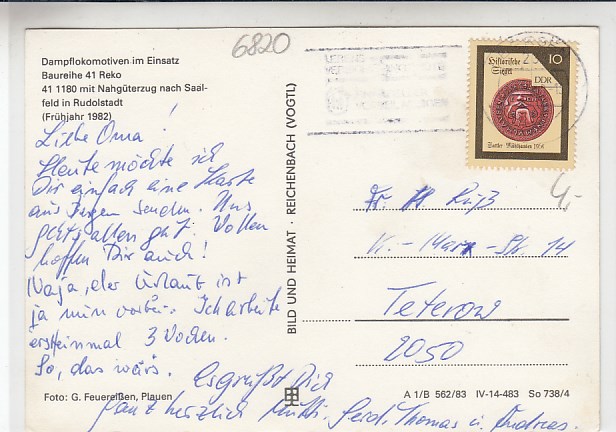 6820
Dampflokomotiven im Einsatz
Baureihe 41 Reko
41 1180 mit Nahgüterzug nach Saal-
feld in Rudolstadt
(Frühjahr 1982)
Liebe Oma!
Heute möchte ich
Dir einfach eine Karte
aus senden. Uns
geht's allen gut. Wollen
hoffen Dir auch!
Naja, der Urlaub ist
ja nun vorbei. Ich arbeite
ersteinmal 3 Wochen.
So, das wär's.
Es grüßt Dich
ganz herzlich Gerd, Thomas u. Andreas.
Foto: G. Feuereißen, Plauen
BILD UND HEIMAT · REICHENBACH (VOGTL)
Historische
Siegel
10
DDR
Berliner Stadtsiegel
Fr. Ruß
K.-Marx-Str. 14
Teterow
2050
4,-
A 1/B 562/83 IV-14-483 So 738/4